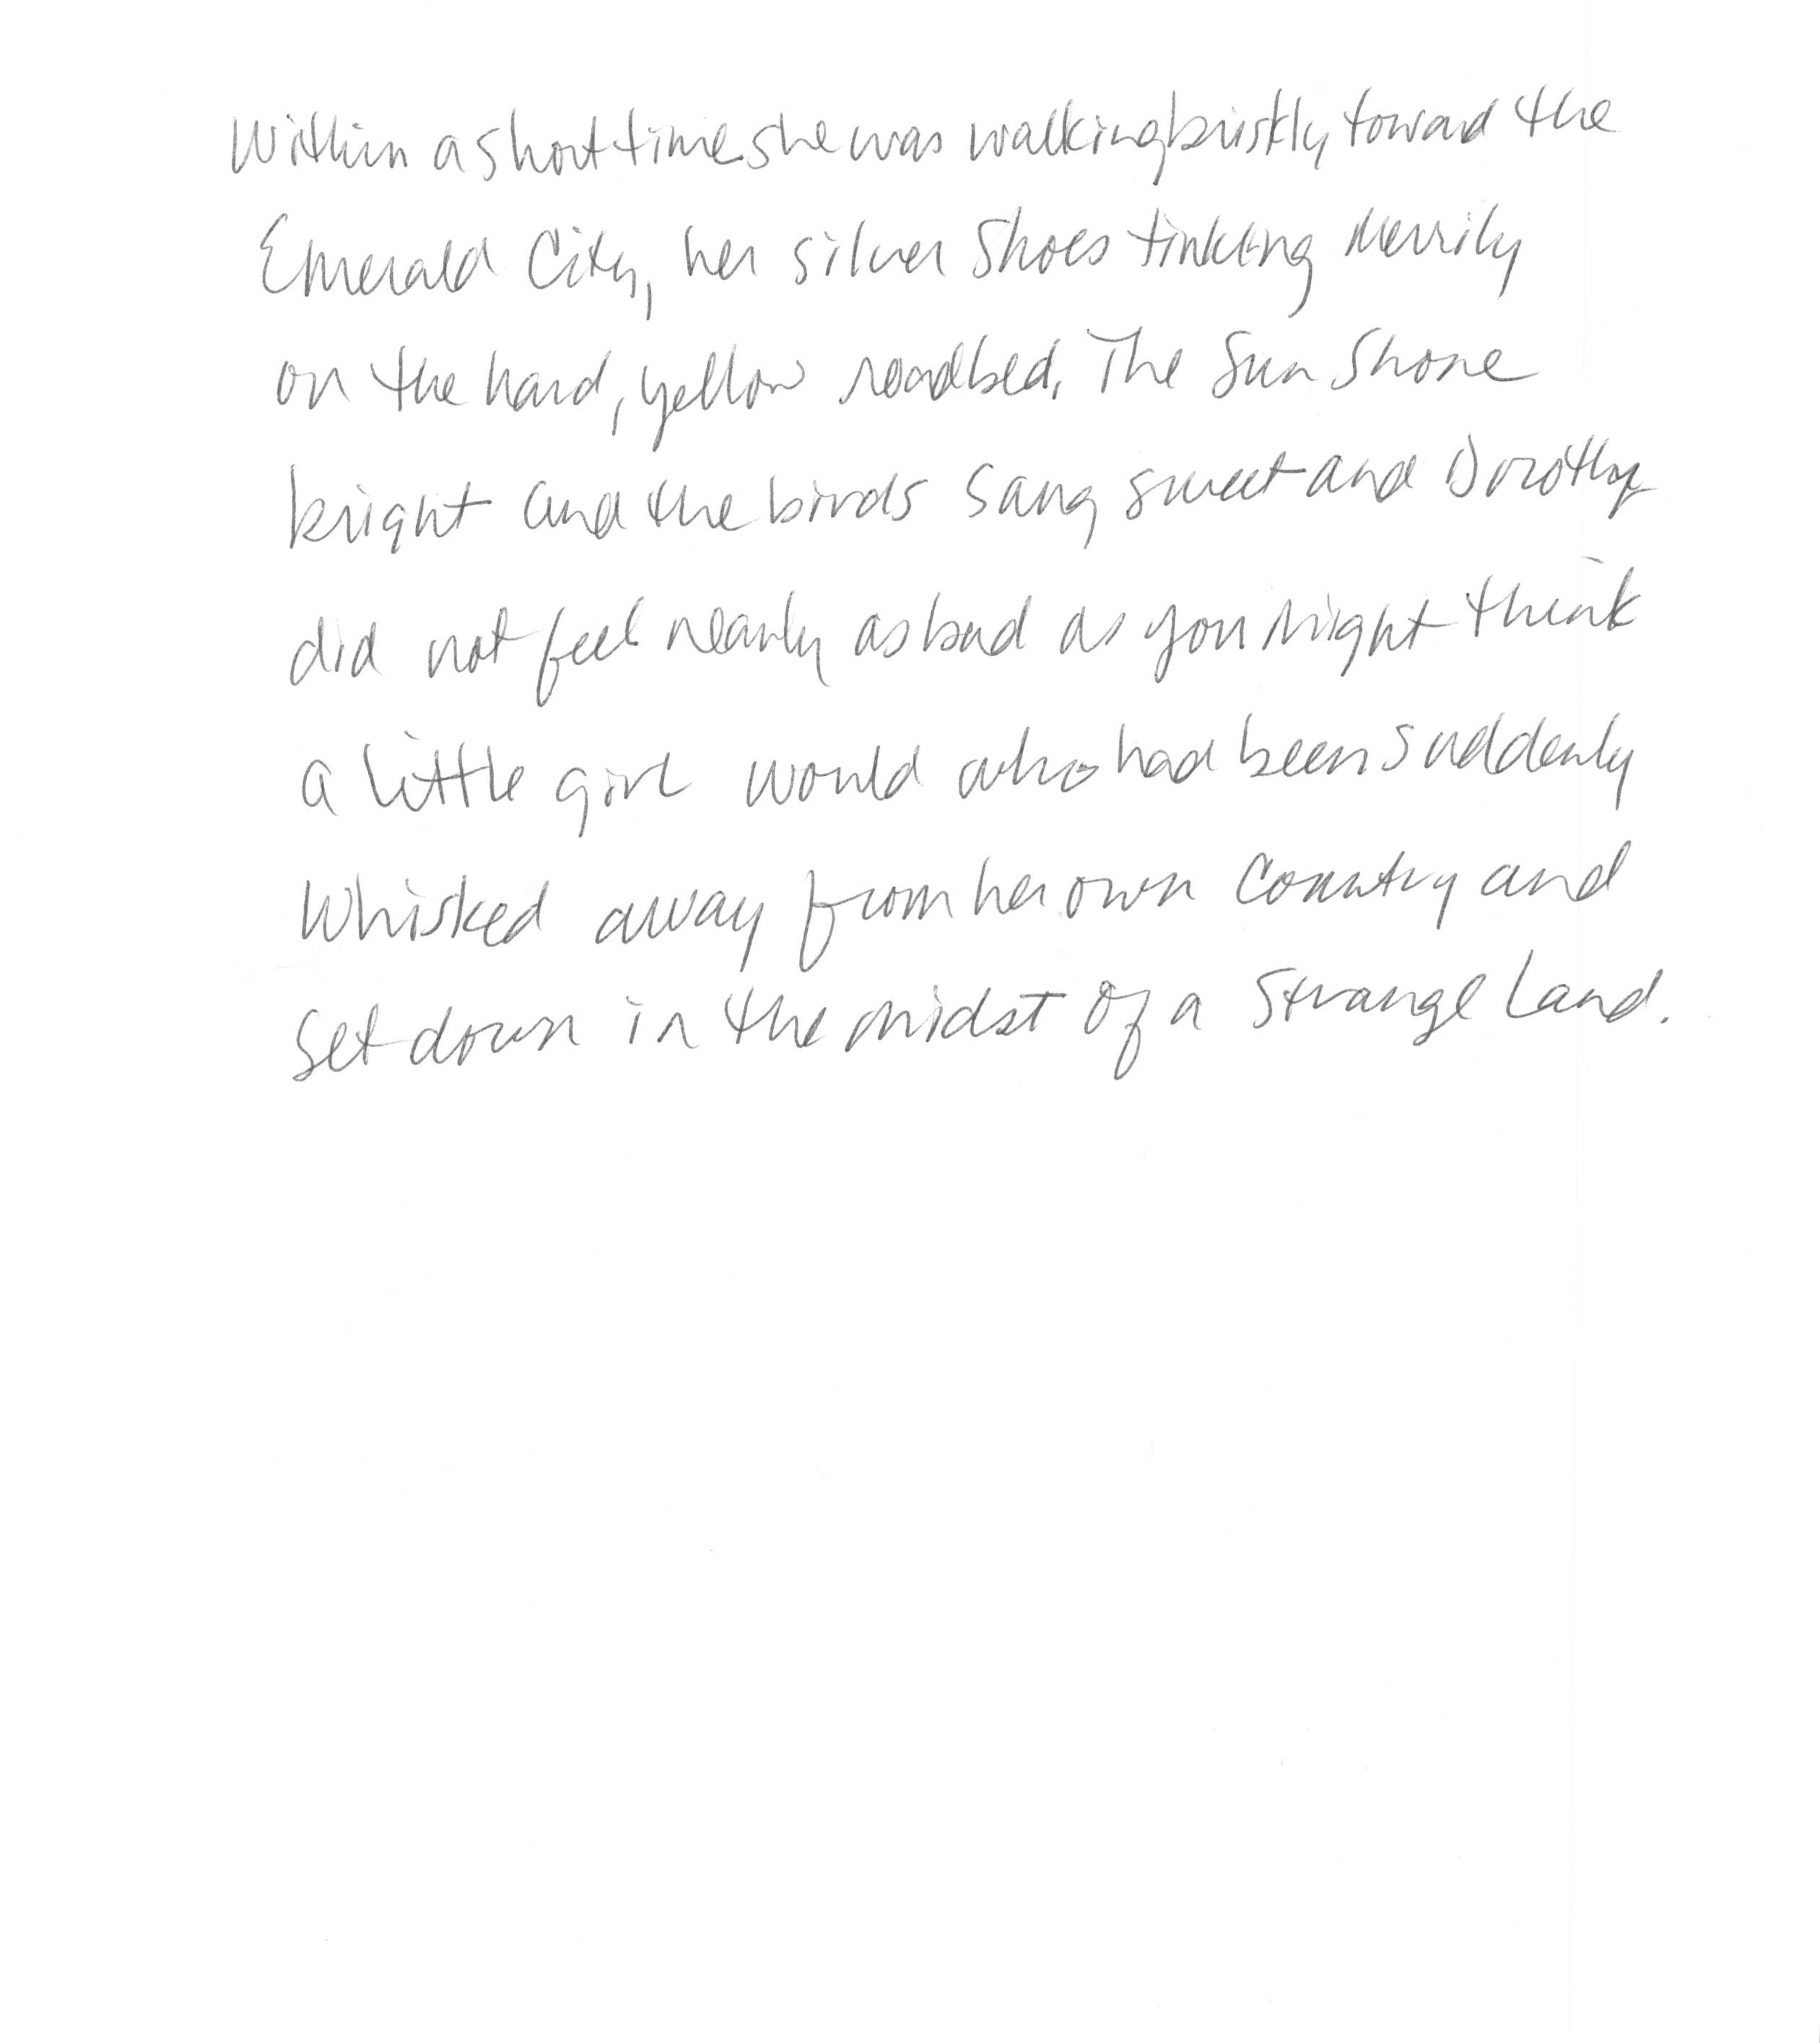 Within a short time she was walking briskly toward the
Emerald City, her silver Shoes tinkling Merrily
on the hard, yellow roadbed. The Sun Shone
bright and the birds Sang sweet and Dorothy
did not feel nearly as bad as you Might think
a little girl would who had been suddenly
Whisked away from her own Country and
Set down in the midst of a Strange Land.